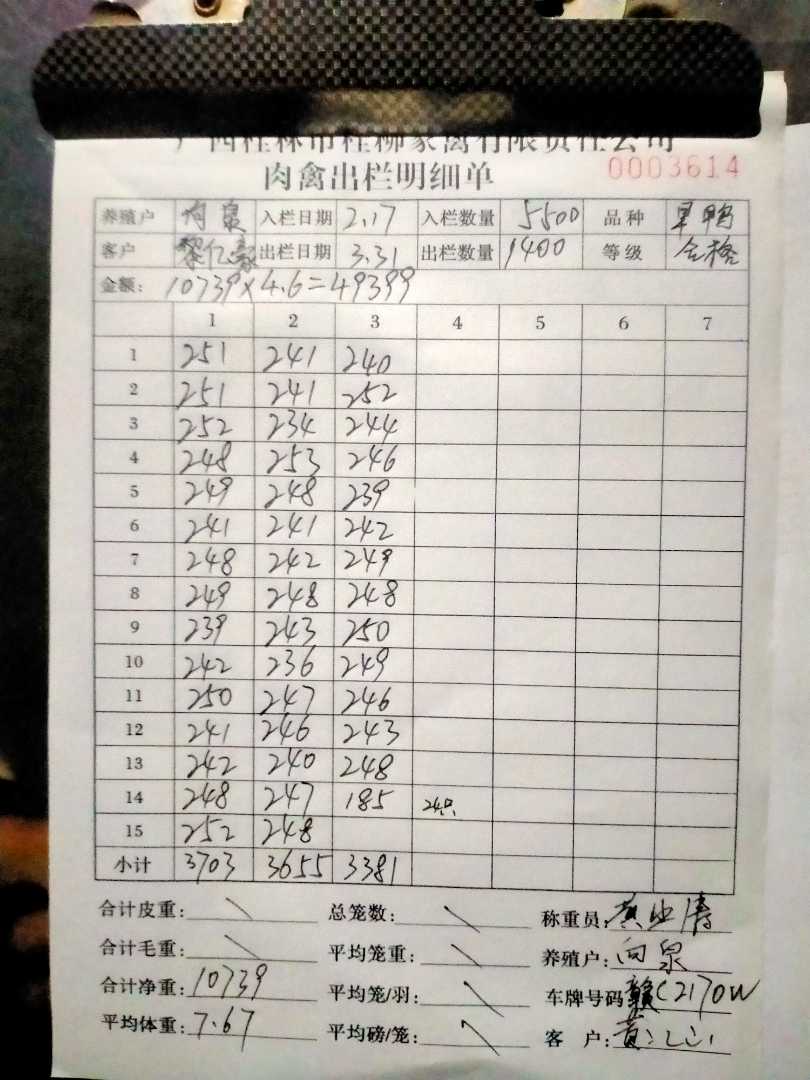 广西桂林市桂柳家禽有限责任公司
肉禽出栏明细单 0003614
养殖户 向泉 入栏日期 2.17 入栏数量 5500 品种 旱鸭
客户 黎亿豪 出栏日期 3.31 出栏数量 1400 等级 合格
金额: 10739×4.6=49399
1 2 3 4 5 6 7
1 251 241 240
2 251 241 252
3 252 234 244
4 248 253 246
5 249 248 239
6 241 241 242
7 248 242 249
8 249 248 248
9 239 243 250
10 242 236 249
11 250 247 246
12 241 246 243
13 242 240 248
14 248 247 185 24只
15 252 248
小计 3703 3655 3381
合计皮重: \ 总笼数: \ 称重员:
合计毛重: \ 平均笼重: \ 养殖户: 向泉
合计净重: 10739 平均笼/羽: \ 车牌号码 赣C2170W
平均体重: 7.67 平均磅/笼: \ 客 户: